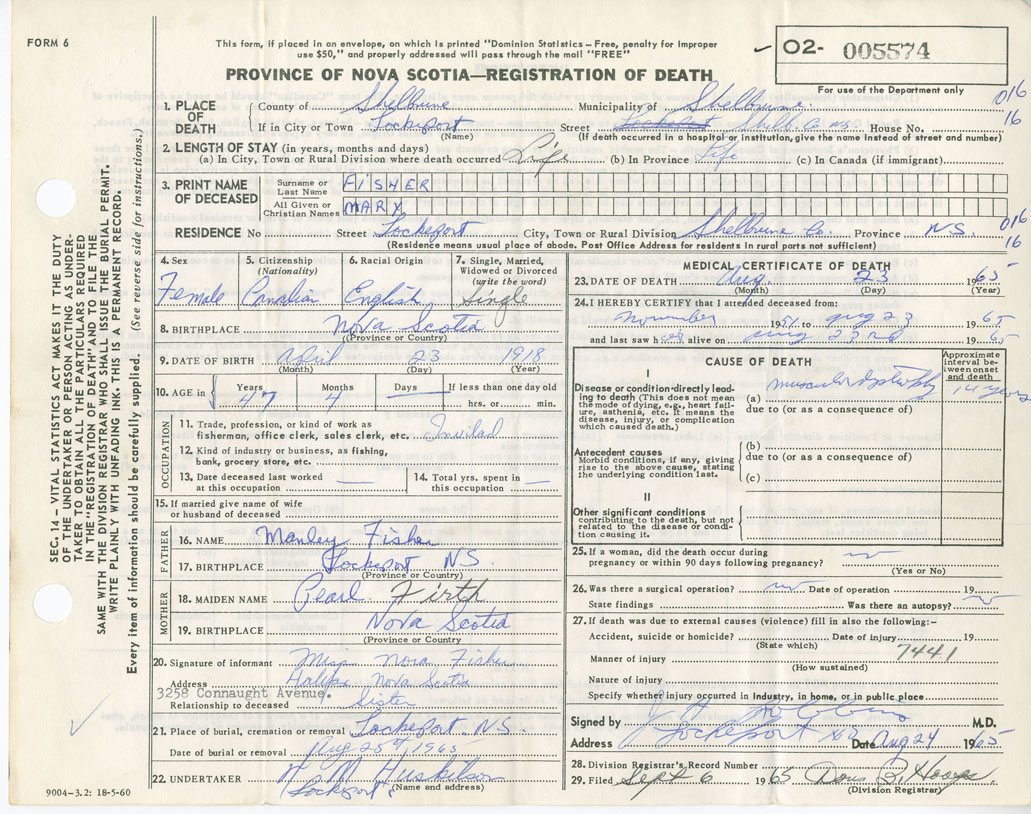 FORM 6
This form, if placed in an envelope, on which is printed "Dominion Statistics – Free, penalty for improper
use $50," and properly addressed will pass through the mail "FREE"
✓ O2- 005574
For use of the Department only
PROVINCE OF NOVA SCOTIA—REGISTRATION OF DEATH
016
16
1. PLACE OF DEATH
County of Shelburne Municipality of Shelburne.
If in City or Town Lockeport Street Lockeport Shelb. Co NS House No.
(Name) (If death occurred in a hospital or institution, give the name instead of street and number)
2. LENGTH OF STAY (in years, months and days)
(a) In City, Town or Rural Division where death occurred Life (b) In Province Life (c) In Canada (if immigrant)
3. PRINT NAME OF DECEASED
Surname or Last Name FISHER
All Given or Christian Names MARY
RESIDENCE No Street Lockeport City, Town or Rural Division Shelburne Co. Province N.S. 016
16
(Residence means usual place of abode. Post Office Address for residents in rural parts not sufficient)
4. Sex Female
5. Citizenship (Nationality) Canadian
6. Racial Origin English
7. Single, Married, Widowed or Divorced (write the word) Single
8. BIRTHPLACE Nova Scotia
(Province or Country)
9. DATE OF BIRTH April 23 1918
(Month) (Day) (Year)
10. AGE in Years 47 Months 4 Days — If less than one day old hrs. or min.
OCCUPATION
11. Trade, profession, or kind of work as
fisherman, office clerk, sales clerk, etc. Invilad
12. Kind of industry or business, as fishing,
bank, grocery store, etc.
13. Date deceased last worked at this occupation —
14. Total yrs. spent in this occupation —
15. If married give name of wife
or husband of deceased
FATHER
16. NAME Manley Fisher
17. BIRTHPLACE Lockeport NS
(Province or Country)
MOTHER
18. MAIDEN NAME Pearl Firth
19. BIRTHPLACE Nova Scotia
(Province or Country)
20. Signature of informant Miss Nora Fisher
Address Halifax Nova Scotia
3258 Connaught Avenue.
Relationship to deceased Sister
21. Place of burial, cremation or removal Lockeport N.S.
Date of burial or removal Aug 25th, 1965
22. UNDERTAKER H M Huskilson
Lockeport (Name and address)
9004–3.2: 18-5-60
MEDICAL CERTIFICATE OF DEATH
23. DATE OF DEATH Aug. 23 1965
(Month) (Day) (Year)
24. I HEREBY CERTIFY that I attended deceased from:
November 1951 to Aug 23 1965
and last saw her alive on Aug 23rd 1965
CAUSE OF DEATH
Approximate interval between onset and death
I
Disease or condition directly leading to death (This does not mean the mode of dying, e.g., heart failure, asthenia, etc. It means the disease, injury, or complication which caused death.)
(a) muscular dystrophy 14 years
due to (or as a consequence of)
Antecedent causes
Morbid conditions, if any, giving rise to the above cause, stating the underlying condition last.
(b)
due to (or as a consequence of)
(c)
II
Other significant conditions
contributing to the death, but not related to the disease or condition causing it.
25. If a woman, did the death occur during
pregnancy or within 90 days following pregnancy? no
(Yes or No)
26. Was there a surgical operation? no Date of operation 19
State findings Was there an autopsy? no
27. If death was due to external causes (violence) fill in also the following:–
Accident, suicide or homicide? Date of injury 19
(State which) 7441
Manner of injury
(How sustained)
Nature of injury
Specify whether injury occurred in industry, in home, or in public place
Signed by M.D.
Address Lockeport NS Date Aug 24 1965
28. Division Registrar's Record Number
29. Filed Sept 6 1965
(Division Registrar)
SEC. 14 – VITAL STATISTICS ACT MAKES IT THE DUTY
OF THE UNDERTAKER OR PERSON ACTING AS UNDER-
TAKER TO OBTAIN ALL THE PARTICULARS REQUIRED
IN THE "REGISTRATION OF DEATH" AND TO FILE THE
SAME WITH THE DIVISION REGISTRAR WHO SHALL ISSUE THE BURIAL PERMIT.
WRITE PLAINLY WITH UNFADING INK. THIS IS A PERMANENT RECORD.
Every item of information should be carefully supplied. (See reverse side for instructions.)